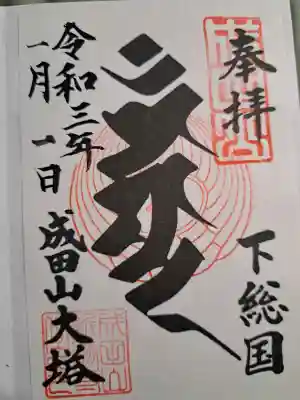 奉拝
下総国
令和三年
一月一日
成田山大塔